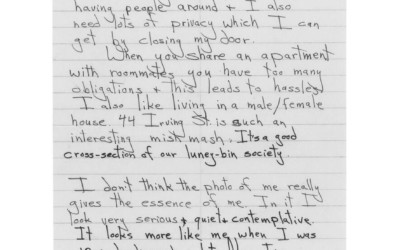 having people around + I also
need lots of privacy which I can
get by closing my door.
When you share an apartment
with roommates you have too many
obligations + this leads to hassles
I also like living in a male/female
house. 44 Irving St. is such an
interesting mish mash. It's a good
cross-section of our luney-bin society
I don't think the photo of me really
gives the essence of me. In it I
look very serious + quiet + contemplative.
It looks more like me when I was